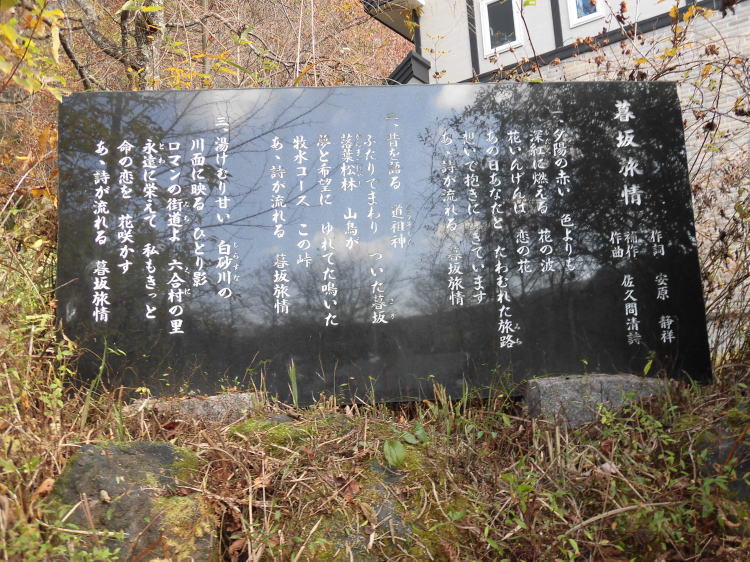 暮坂旅情
作詞 安原 静祥
補作
作曲 佐久間清詩
一、夕陽の赤い 色よりも
深紅に燃える 花の波
花いんげんは 恋の花
あの日あなたと たわむれた旅路
想いで抱きに きています
あゝ詩が流れる 暮坂旅情
二、昔を語る 道祖神
ふたりでまわり ついた暮坂
落葉松林 山鳥が
夢と希望に ゆれてた鳴いた
牧水コース この峠
あゝ詩が流れる 暮坂旅情
三、湯けむり甘い 白砂川の
川面に映る ひとり影
ロマンの街道よ 六合村の里
永遠に栄えて 私もきっと
命の恋を 花咲かす
あゝ詩が流れる 暮坂旅情